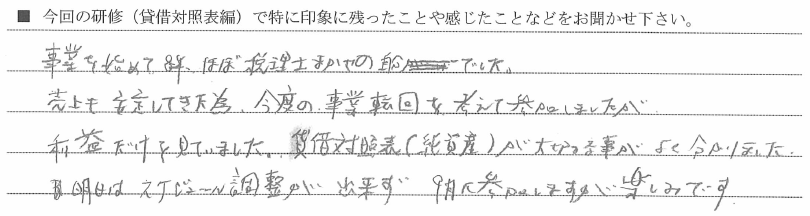 ■ 今回の研修(貸借対照表編)で特に印象に残ったことや感じたことなどをお聞かせ下さい。
事業を始めて8年、ほぼ税理士まかせの でした。
売上も安定してきた為、今度の事業転回を考えて参加しましたが
利益だけを見ていました。貸借対照表(純資産)が大切な事がよく分かりました。
明日はスケジュール調整が出来ず 9月に参加しますが楽しみです